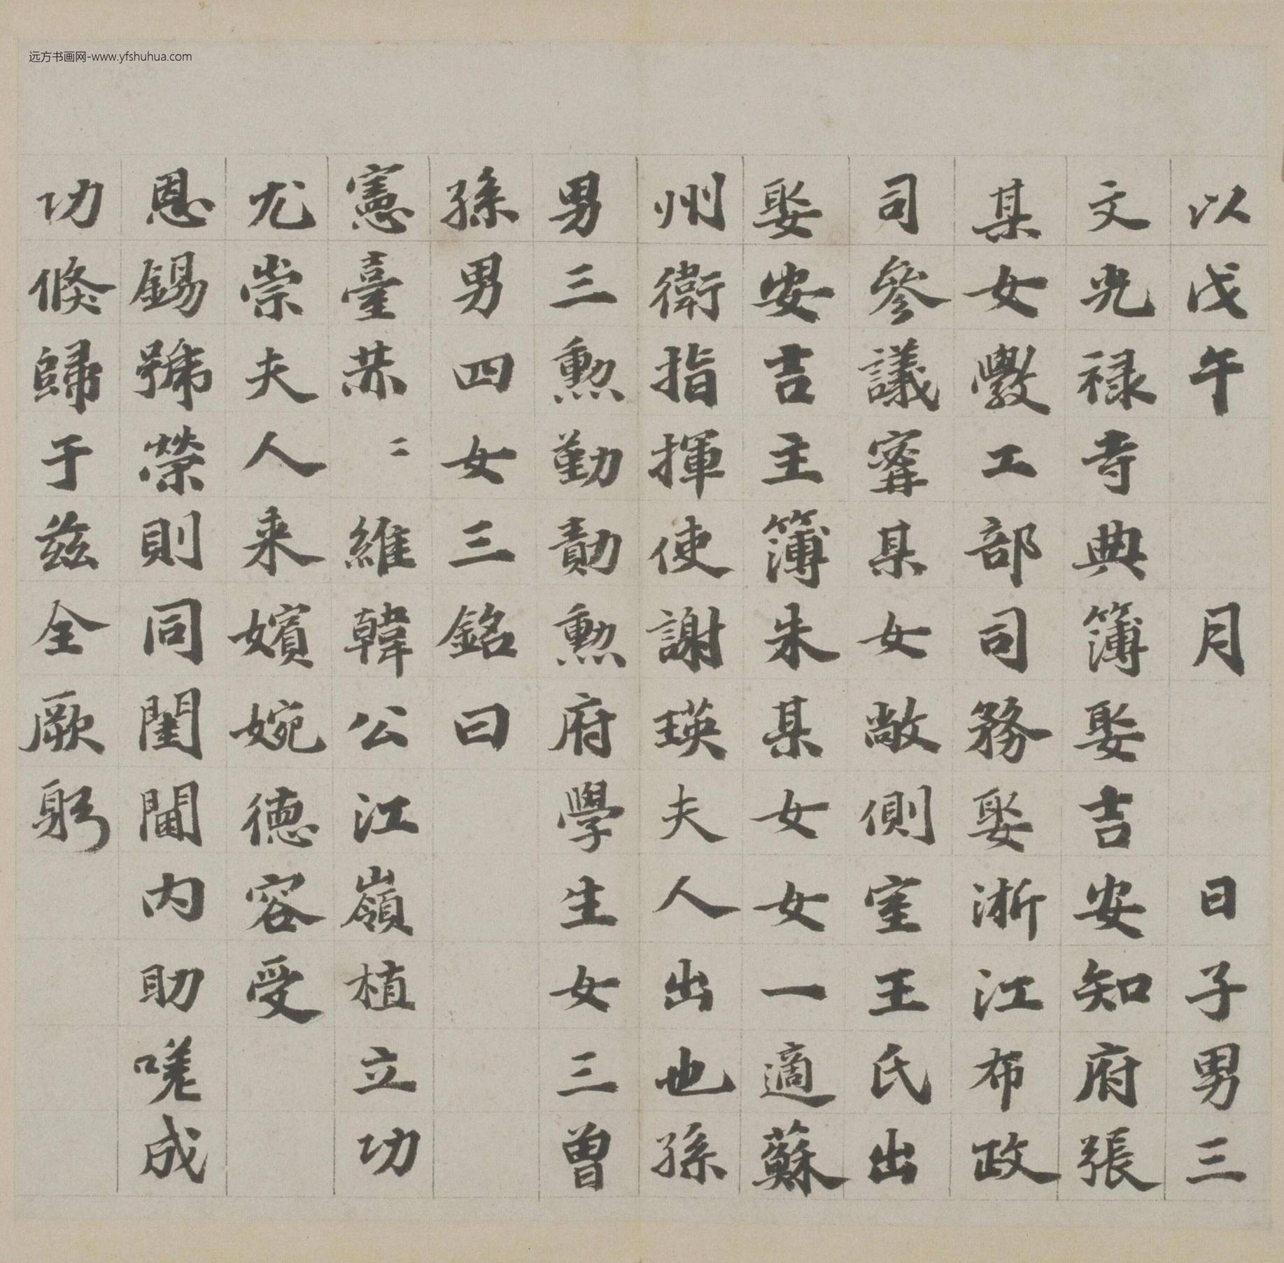 远方书画网-www.yfshuhua.com
以戊午 月 日子男三
文光禄寺典簿娶吉安知府張
某女斅工部司務娶浙江布政
司參議寗某女敞側室王氏出
娶安吉主簿朱某女女一適蘇
州衛指揮使謝瑛夫人出也孫
男三勲勤勣勲府學生女三曾
孫男四女三銘曰
憲臺㷖〻維韓公江嶺植立功
尤崇夫人来嬪婉德容受
恩錫號榮則同閨閫内助嘆成
功倏歸于兹全厥躬